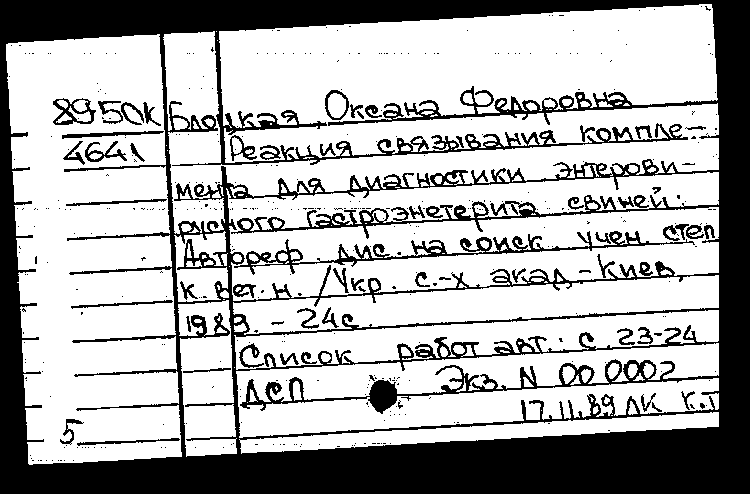 8950К Блоцкая, Оксана Федоровна
4641 Реакция связывания компле-
мента для диагностики энтерови-
русного гастроэнетерита свиней:
Автореф. дис. на соиск. учен. степ
к. вет. н. /Укр. с.-х. акад.-Киев,
1989. - 24с.
Список работ авт.: с. 23-24
ДСП Экз. N 00 0002
17.11.89 ЛК К.Т
5